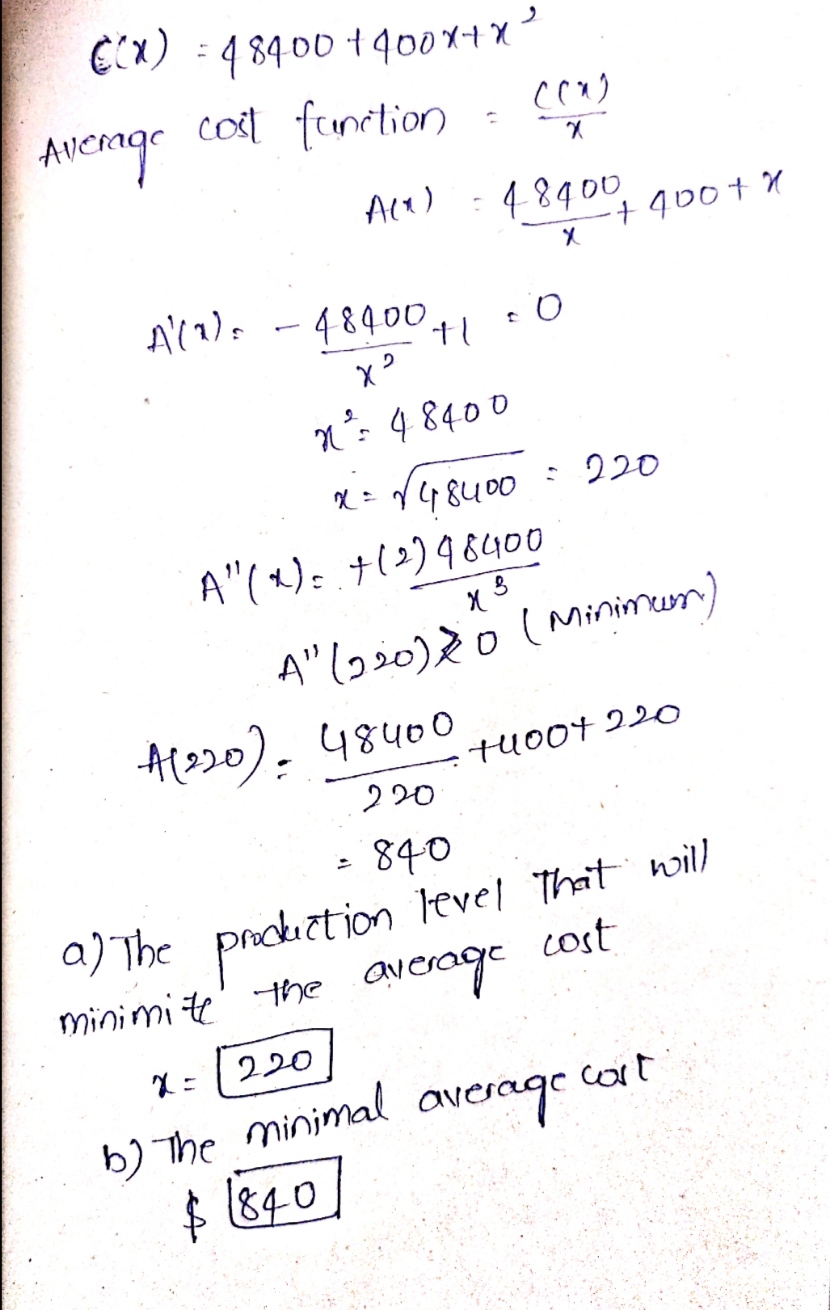 C(x) = 48400 + 400x + x²
Average cost function = C(x)/x
A(x) = 48400/x + 400 + x
A'(x) = - 48400/x² + 1 = 0
x² = 48400
x = √48400 = 220
A"(x) = +(2) 48400/x³
A"(220) > 0 (Minimum)
A(220) = 48400/220 + 400 + 220
= 840
a) The production level that will
minimize the average cost
x = 220
b) The minimal average cost
$ 840